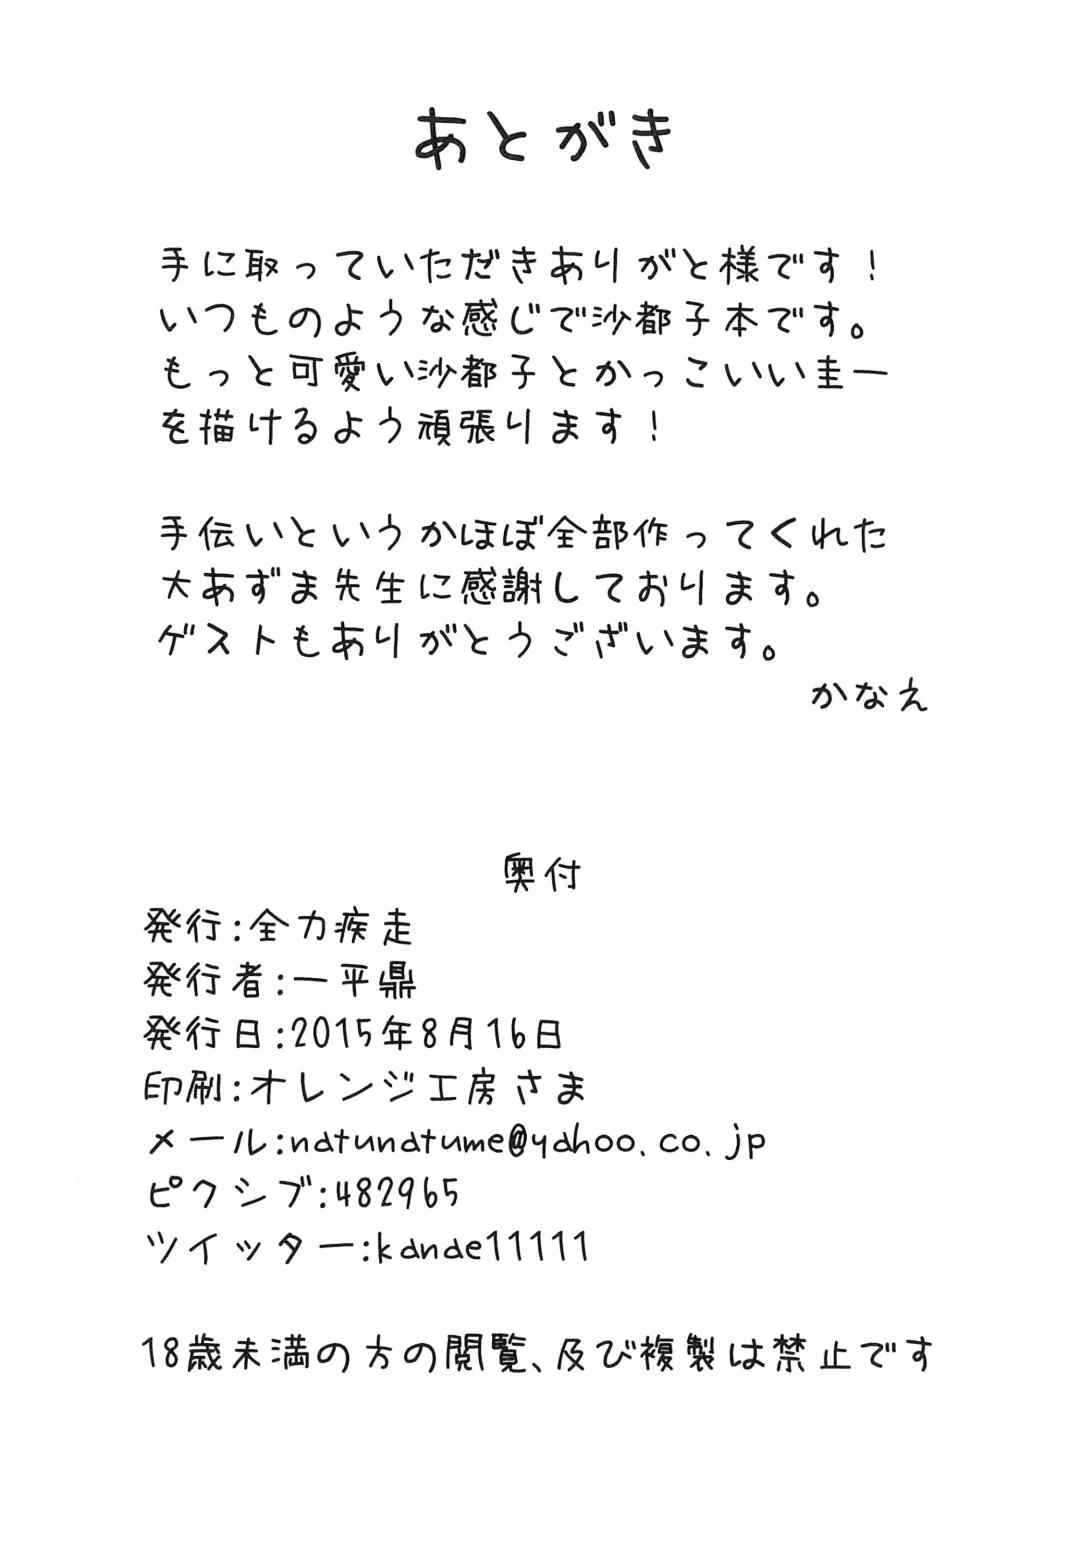 あとがき
手に取っていただきありがと様です！
いつものような感じで沙都子本です。
もっと可愛い沙都子とかっこいい圭一
を描けるよう頑張ります！
手伝いというかほぼ全部作ってくれた
大あずま先生に感謝しております。
ゲストもありがとうございます。
かなえ
奥付
発行:全力疾走
発行者:一平鼎
発行日:2015年8月16日
印刷:オレンジ工房さま
メール:natunatume@yahoo.co.jp
ピクシブ:482965
ツイッター:kanae11111
18歳未満の方の閲覧、及び複製は禁止です